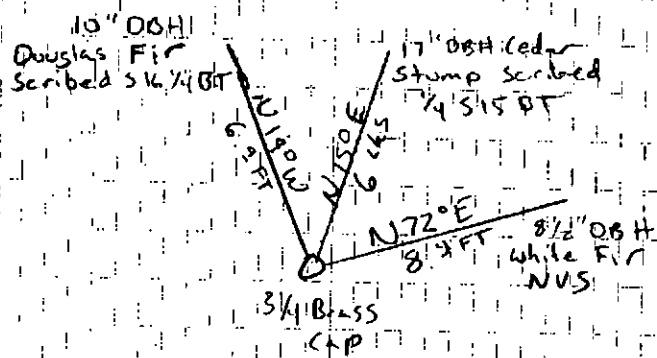 10" DBH
Douglas Fir
Scribed S16 1/4 BT
17" DBH Cedar
Stump Scribed
1/4 S15 BT
N 19° W
6.9 FT
N 15° E
6 lks
N 72° E
8.4 FT
8 1/2" DBH
White Fir
NVS
3 1/4 Brass
Cap